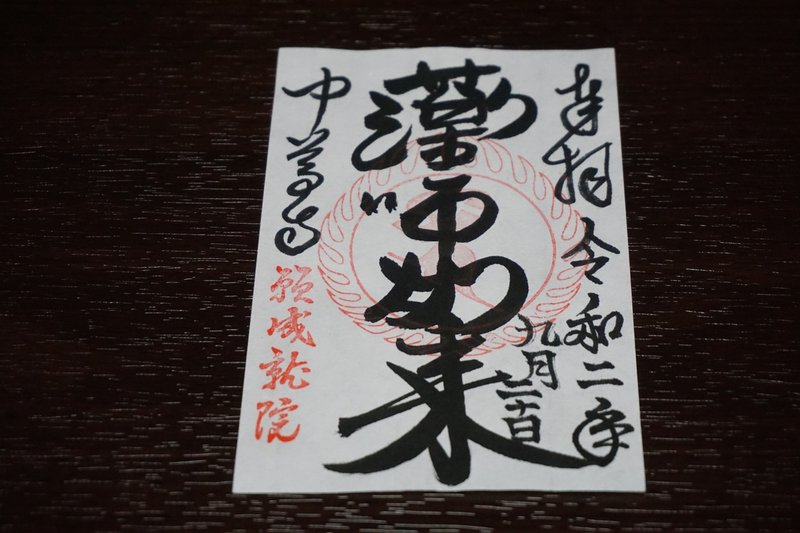 奉拝 令和二年
九月二十日
薬師如来
中尊寺
願成就院